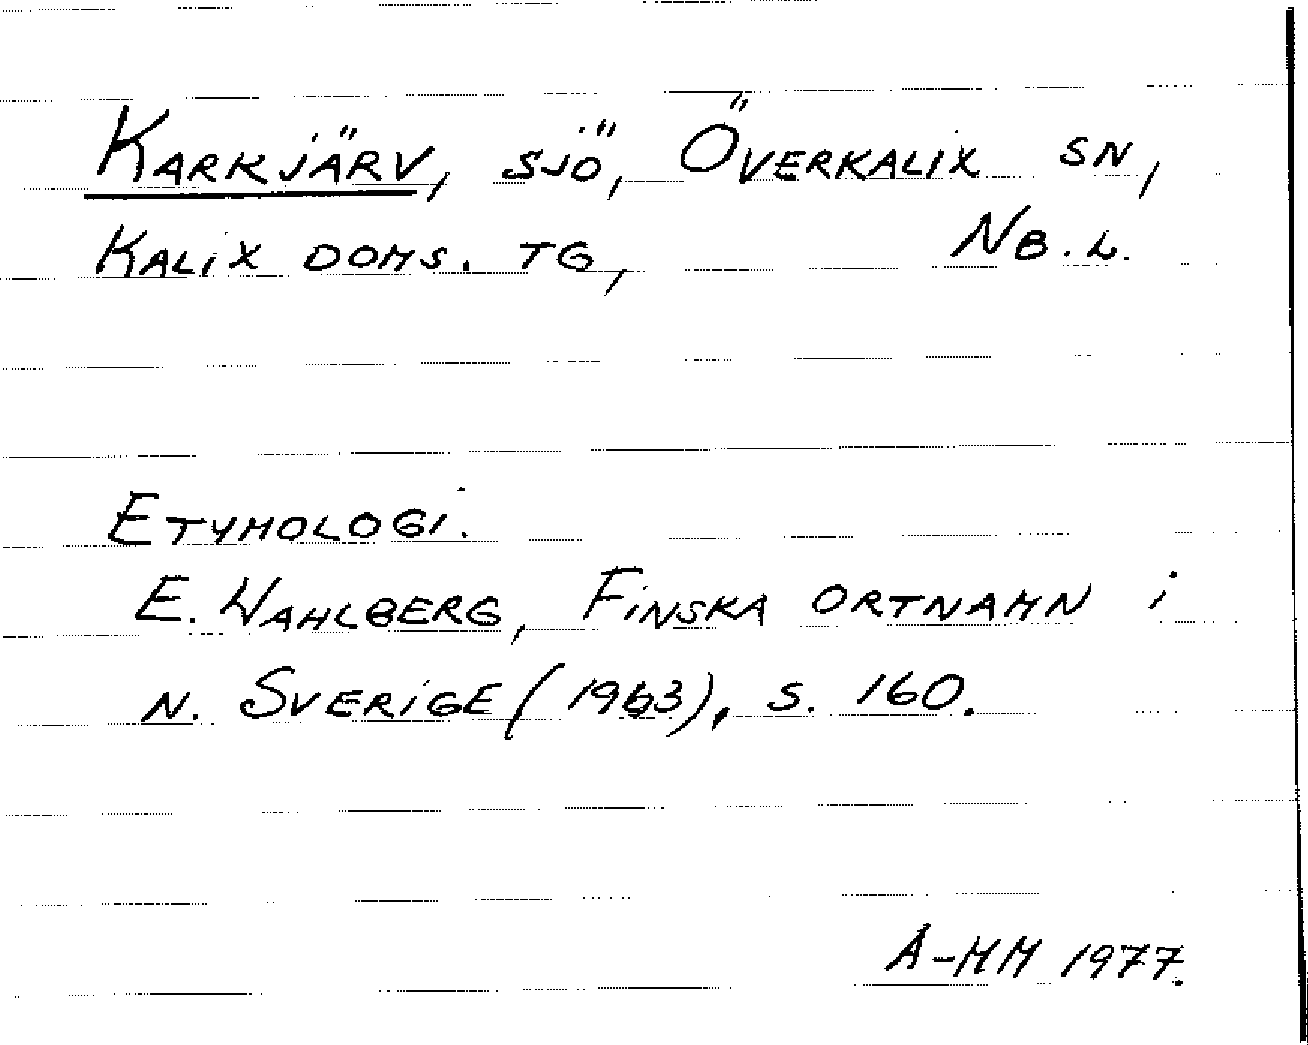 KARKJÄRV, SJÖ, ÖVERKALIX SN,
KALIX DOMS. TG, NB.L.
ETYMOLOGI.
E. WAHLBERG, FINSKA ORTNAMN i
N. SVERIGE (1963), S. 160.
A-MM 1977.